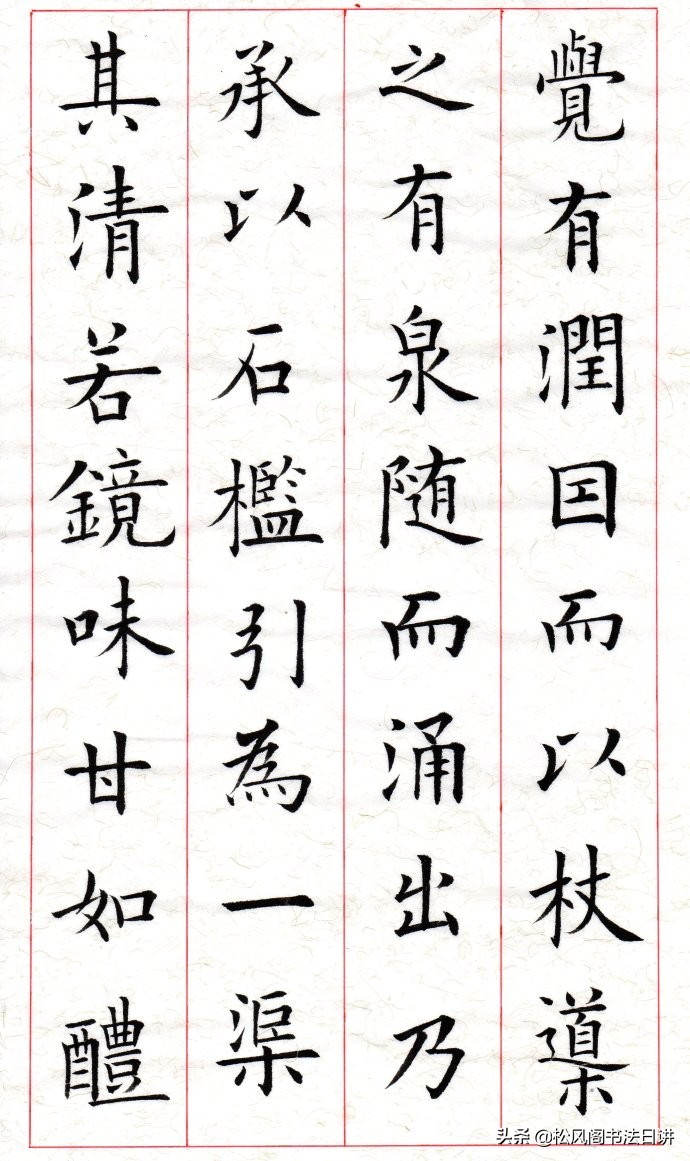 覺有潤囙而以杖導
之有泉随而涌出乃
承以石檻引為一渠
其清若鏡味甘如醴
头条 @松风阁书法日讲